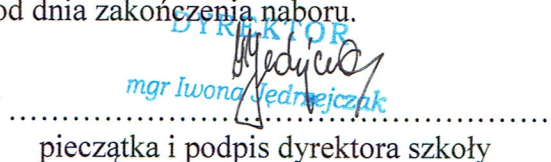 od dnia zakończenia naboru.
DYREKTOR
mgr Iwona Jędrzejczak
pieczątka i podpis dyrektora szkoły